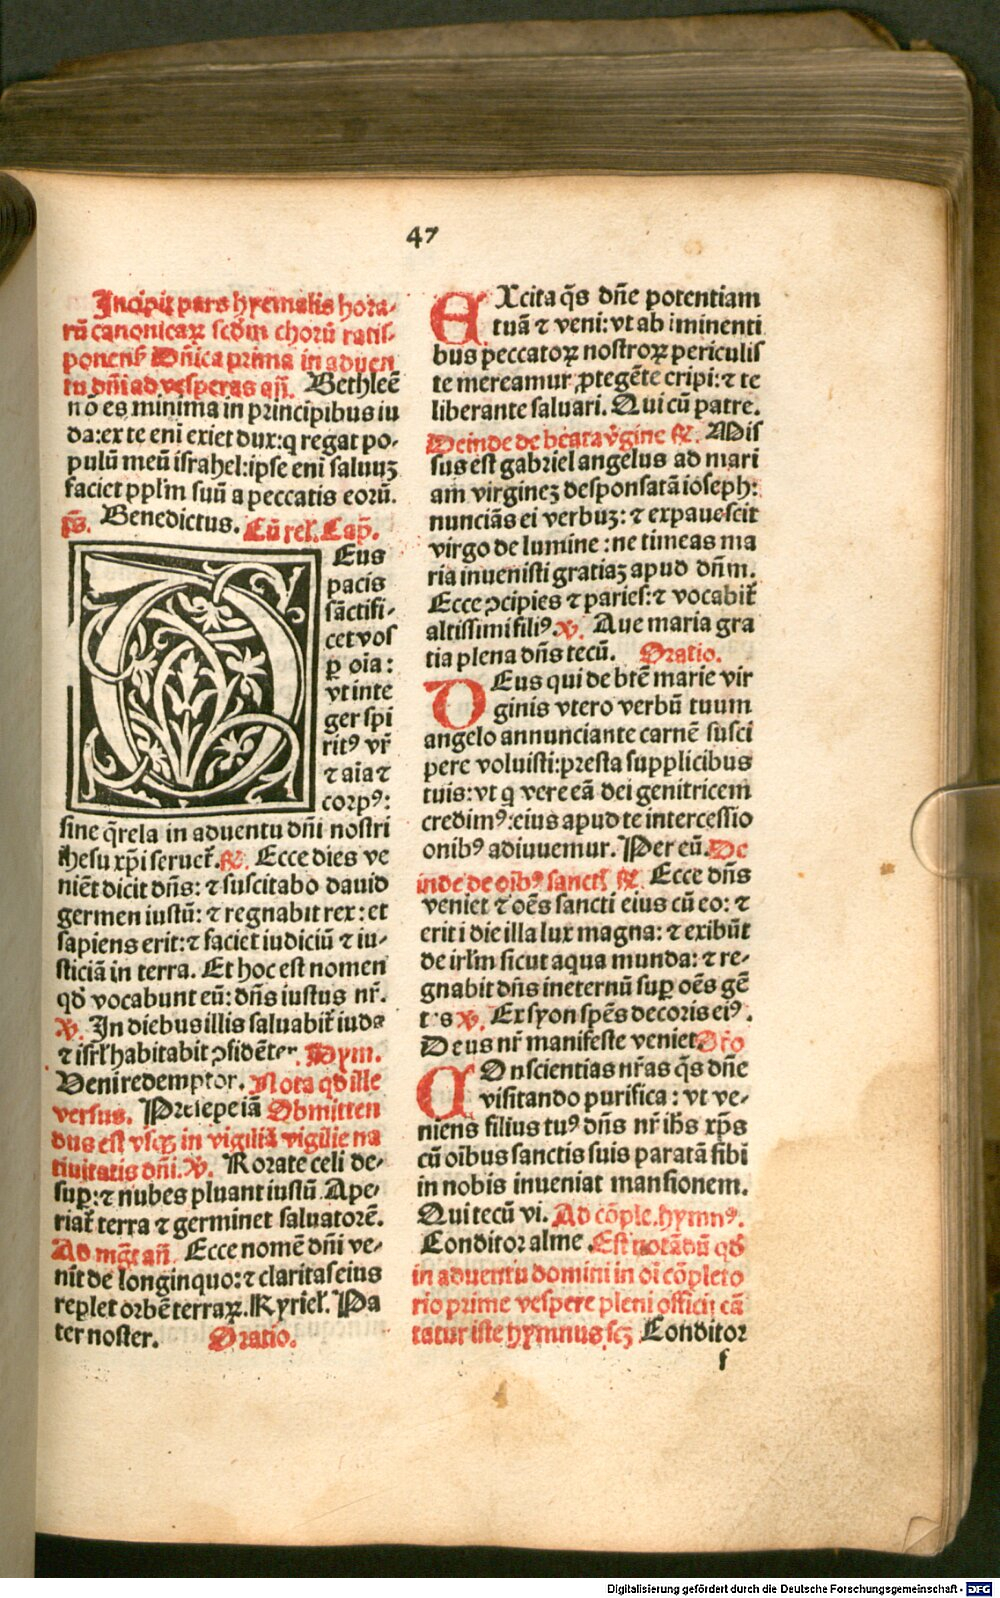 47
Incipit pars hyemalis hora-
rū canonicaꝝ scd̄m chorū ratis-
ponens̄ Dn̄ica prima in aduen
tu dn̄i ad vesperas an̄. Bethleē
nō es minima in principibus iu
da:ex te eni exiet dux:q regat po-
pulū meū israhel:ipse eni saluuꝫ
faciet ppl̄m suū a peccatis eorū.
ps̄. Benedictus. Cū rel̄. Cap̄.
DEus
pacis
sāctifi-
cet vos
ꝑ oīa:
vt inte
ger spi
ritꝰ vr̄
⁊ aīa ⁊
corpꝰ:
sine q̄rela in aduentu dn̄i nostri
ihesu xp̄i seruet᷑. ℟. Ecce dies ve
niēt dicit dn̄s: ⁊ suscitabo dauid
germen iustū: ⁊ regnabit rex: et
sapiens erit:⁊ faciet iudiciū ⁊ iu-
sticiā in terra. Et hoc est nomen
qd̄ vocabunt eū: dn̄s iustus nr̄.
℣. In diebus illis saluabit᷑ iuda
⁊ isrl̄ habitabit ꝯfidēter. Hym.
Veni redemptor. Nota qd̄ ille
versus. Presepe iā Obmitten
dus est vsqꝫ in vigiliā vigilie na
tiuitatis dn̄i. ℣. Rorate celi de-
sup̄:⁊ nubes pluant iustū Ape-
riat᷑ terra ⁊ germinet saluatorē.
Ad mḡt an̄. Ecce nomē dn̄i ve-
nit de longinquo:⁊ claritas eius
replet orbē terraꝝ. Kyriel̄. Pa
ter noster. Oratio.
EXcita q̄s dn̄e potentiam
tuā ⁊ veni:vt ab iminenti
bus peccatoꝝ nostroꝝ periculis
te mereamur ꝓtegēte eripi:⁊ te
liberante saluari. Qui cū patre.
Deinde de beata v̄gine ℟. Mis
sus est gabriel angelus ad mari
am virgineꝫ desponsatā ioseph:
nunciās ei verbuꝫ: ⁊ expauescit
virgo de lumine :ne timeas ma
ria inuenisti gratiaꝫ apud dn̄m.
Ecce ꝯcipies ⁊ paries:⁊ vocabit᷑
altissimi filiꝰ. ℣. Aue maria gra
tia plena dn̄s tecū. Oratio.
DEus qui de btē marie vir
ginis vtero verbū tuum
angelo annunciante carnē susci
pere voluisti:presta supplicibus
tuis:vt q vere eā dei genitricem
credimꝰ:eius apud te intercessio
onibꝰ adiuuemur. Per eū. De
inde de oībꝰ sanct̄ ℟. Ecce dn̄s
veniet ⁊ oēs sancti eius cū eo: ⁊
erit i die illa lux magna: ⁊ exibūt
de irl̄m sicut aqua munda: ⁊ re-
gnabit dn̄s in eternū sup̄ oēs gē
tes ℣. Ex syon spēs decoris eiꝰ.
Deus nr̄ manifeste veniet. Oro
COnscientias nr̄as q̄s dn̄e
visitando purifica : vt ve-
niens filius tuꝰ dn̄s nr̄ ih̄s xp̄s
cū oībus sanctis suis paratā sibi
in nobis inueniat mansionem.
Qui tecū vi. Ad cōple. hymnꝰ.
Conditor alme. Est notādū qd̄
in aduentu domini in oī cōpleto
rio prime vespere pleni officij cā
tatur iste hymnus scꝫ Conditor
f
Digitalisierung gefördert durch die Deutsche Forschungsgemeinschaft - DFG